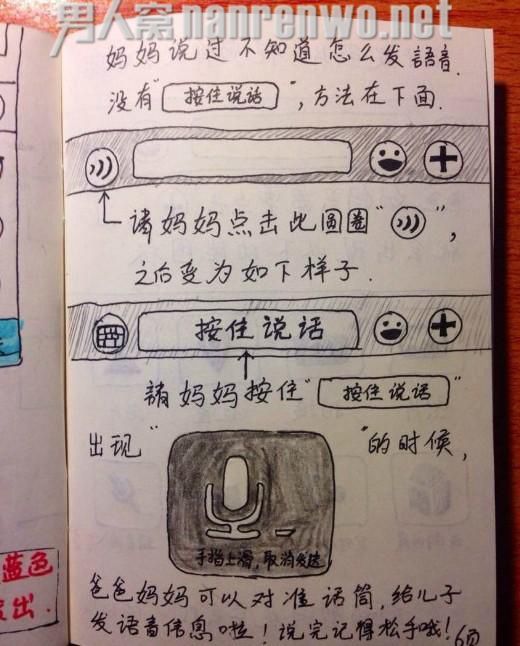 男人窝 nanrenwo.net
妈妈说过不知道怎么发語音.
没有"按住说话",方法在下面.
请妈妈点击此圆圈" ",
之后变为如下样子.
按住说话
請妈妈按住"按住说话"
出现" "的时候,
手指上滑,取消发送
爸爸妈妈可以对准话筒,给儿子
发语音信息啦!说完记得松手哦!
6页
蓝色
出.